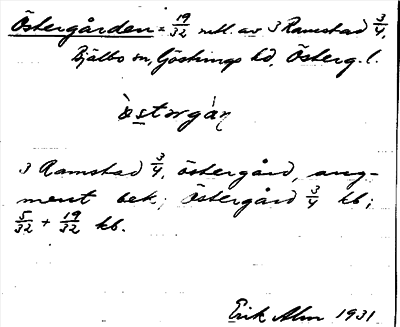 Östergården = 19/32 mtl. av 3 Ramstad 3/4,
Bjälbo sn, Göstrings hd, Österg. l.
3 Ramstad 3/4, östergård, aug-
ment bek.; Östergård 3/4 kb;
5/32 + 19/32 kb.
Erik Alm 1931